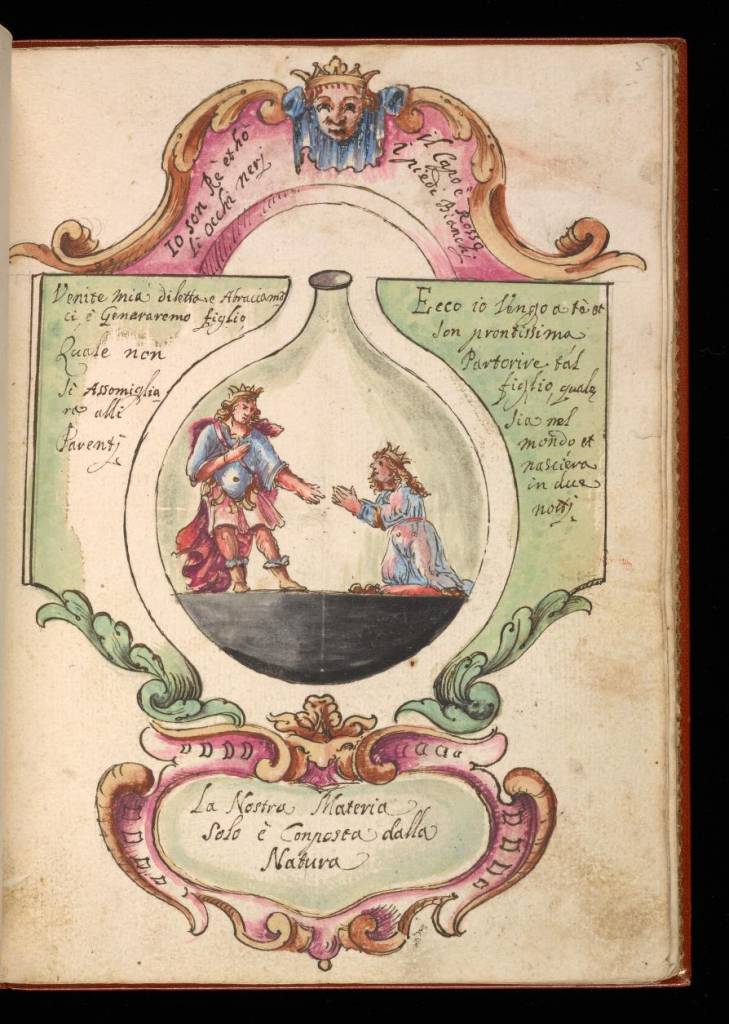 Io son Rè et hò
li occhi neri
il Capo è Rosso
i piedi Bianchi
Venite mia diletta e Abraciamo
ci è Genararemo figlio
Quale non
Si Assomiglia
ra alli
Parenti
Ecco io Vengo a te et
son prontissima
Partorire tal
figlio quale
sia nel
mondo et
nasciera
in due
notti
La Nostra Materia
Solo è Conposta dalla
Natura